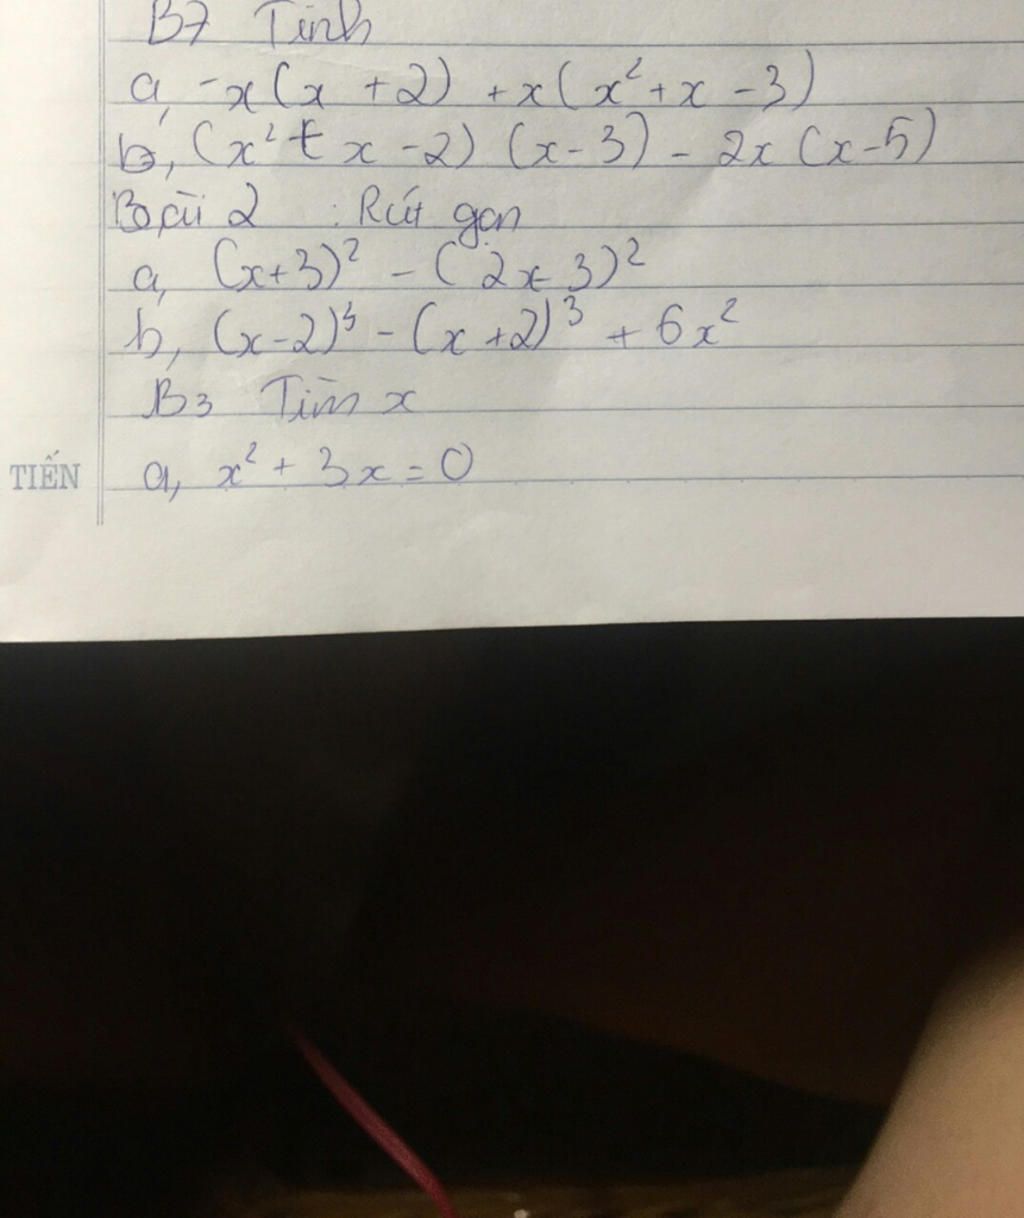 B7 Tính
a, -x(x + 2) + x(x² + x - 3)
b, (x² + x - 2) (x - 3) - 2x (x - 5)
Bài 2 : Rút gọn
a, (x+3)² - (2x - 3)²
b, (x-2)³ - (x +2)³ + 6x²
B3 Tìm x
TIẾN a, x² + 3x = 0